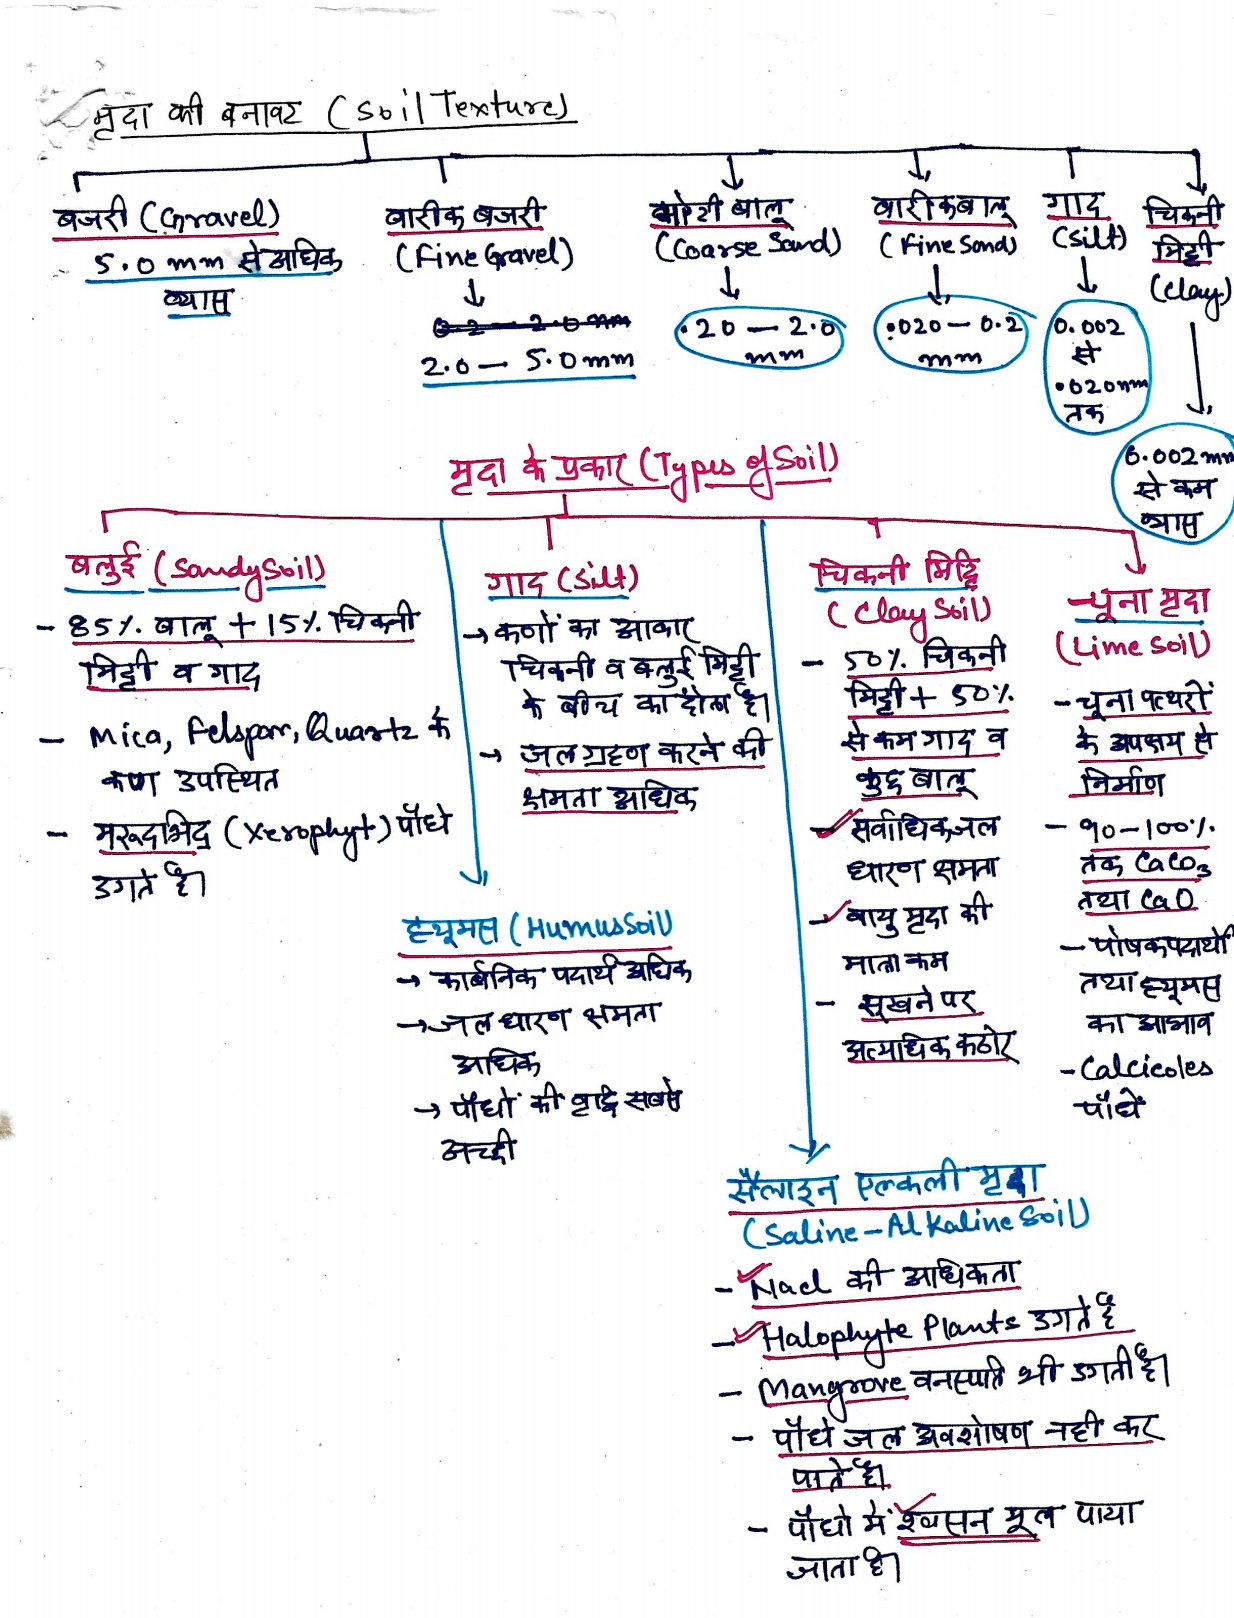 मृदा की बनावट (Soil Texture)
बजरी (Gravel)
5.0 mm से अधिक
व्यास
बारीक बजरी
(Fine Gravel)
0.2 — 2.0 mm
2.0 — 5.0 mm
मोटी बालू
(Coarse Sand)
.20 — 2.0
mm
बारीक बालू
(Fine Sand)
.020 — 0.2
mm
गाद
(Silt)
0.002
से
.020mm
तक
चिकनी
मिट्टी
(Clay)
0.002 mm
से कम
व्यास
मृदा के प्रकार (Types of Soil)
बलुई (Sandy Soil)
- 85% बालू + 15% चिकनी
मिट्टी व गाद
- Mica, Felspar, Quartz के
कण उपस्थित
- मरूदभिद् (Xerophyt) पौधे
उगते है।
गाद (Silt)
→ कणों का आकार
चिकनी व बलुई मिट्टी
के बीच का होता है।
→ जल ग्रहण करने की
क्षमता अधिक
ह्यूमस (Humus Soil)
→ कार्बनिक पदार्थ अधिक
→ जल धारण क्षमता
अधिक
→ पौधों की वृद्धि सबसे
अच्छी
चिकनी मिट्टि
(Clay Soil)
- 50% चिकनी
मिट्टी + 50%
से कम गाद व
कुछ बालू
✓ सर्वाधिक जल
धारण क्षमता
✓ वायु मृदा की
मात्रा कम
- सूखने पर
अत्याधिक कठोर
चूना मृदा
(Lime Soil)
- चूना पत्थरों
के अपक्षय से
निर्माण
- 90-100%
तक CaCO₃
तथा CaO
- पोषक पदार्थो
तथा ह्यूमस
का आभाव
- Calcicoles
पौधें
सैलाइन एल्कली मृदा
(Saline-Alkaline Soil)
- ✓ Nacl की अधिकता
- ✓ Halophyte Plants उगते है
- Mangrove वनस्पति भी उगती है।
- पौधे जल अवशोषण नही कर
पाते है।
- पौधो में श्वसन मूल पाया
जाता है।